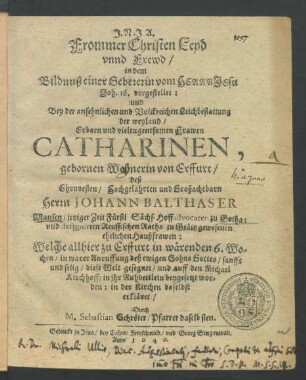 J. N. J. A.
Frommer Christen Leyd
vnnd Frewd /
in dem
Bildnuß einer Beterin vom HERRN JEsu
Joh. 16. vorgestellet:
und
Bey der ansehnlichen und Volckreichen Leichbestattung
der weyland /
Erbarn und vieltugentsamen Frawen
CATHARINEN,
gebornen Wagnerin von Erffurt /
deß
Ehrnvesten / Hochgelahrten und Großachtbarn
Herrn JOHANN BALTHASER
/ ietziger Zeit Fürstl. Sächs. Hoff-Advocaten zu Gotha:
und designirten Reussischen Raths zu Gräitz gewesenen
ehelichen Haußfrawen:
Welche allhier zu Erffurt in wärenden 6. Wo-
chen / in warer Anruffung deß ewigen Sohns Gottes / sanfft
und selig / diese Welt gesegnet / und auff den Michael
Kirchhoff / in ihr Ruhbettlein beygesetzt wor-
den: in der Kirchen daselbst
erkläret /
Durch
M. Sebastian Schröter / Pfarrer daselbsten.
Gedruckt zu Jena / bey Caspar Freyschmid /